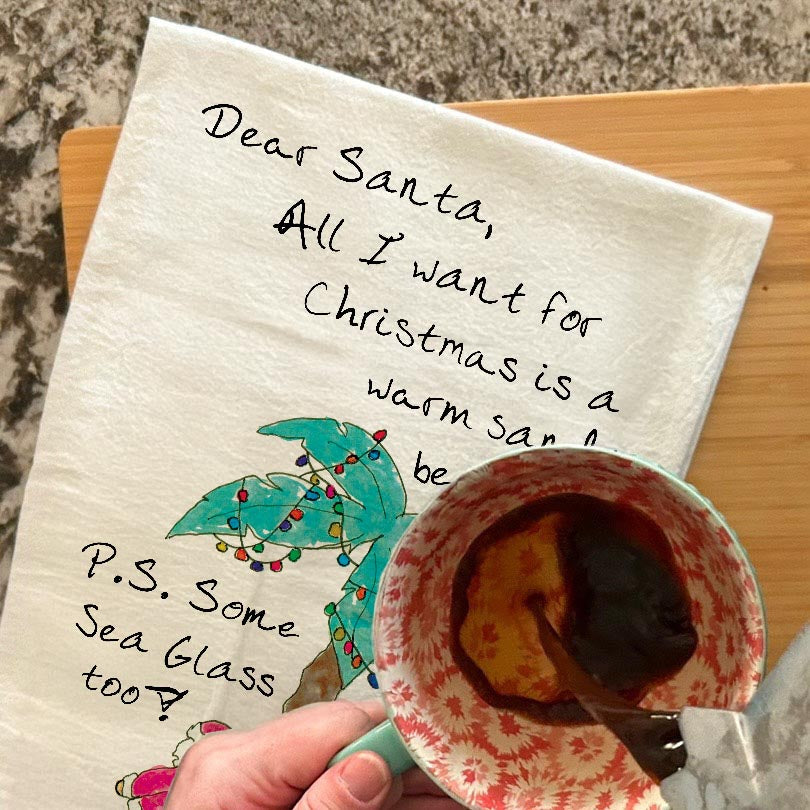 Dear Santa,
All I want for
Christmas is a
warm
P.S. Some
Sea Glass
too!